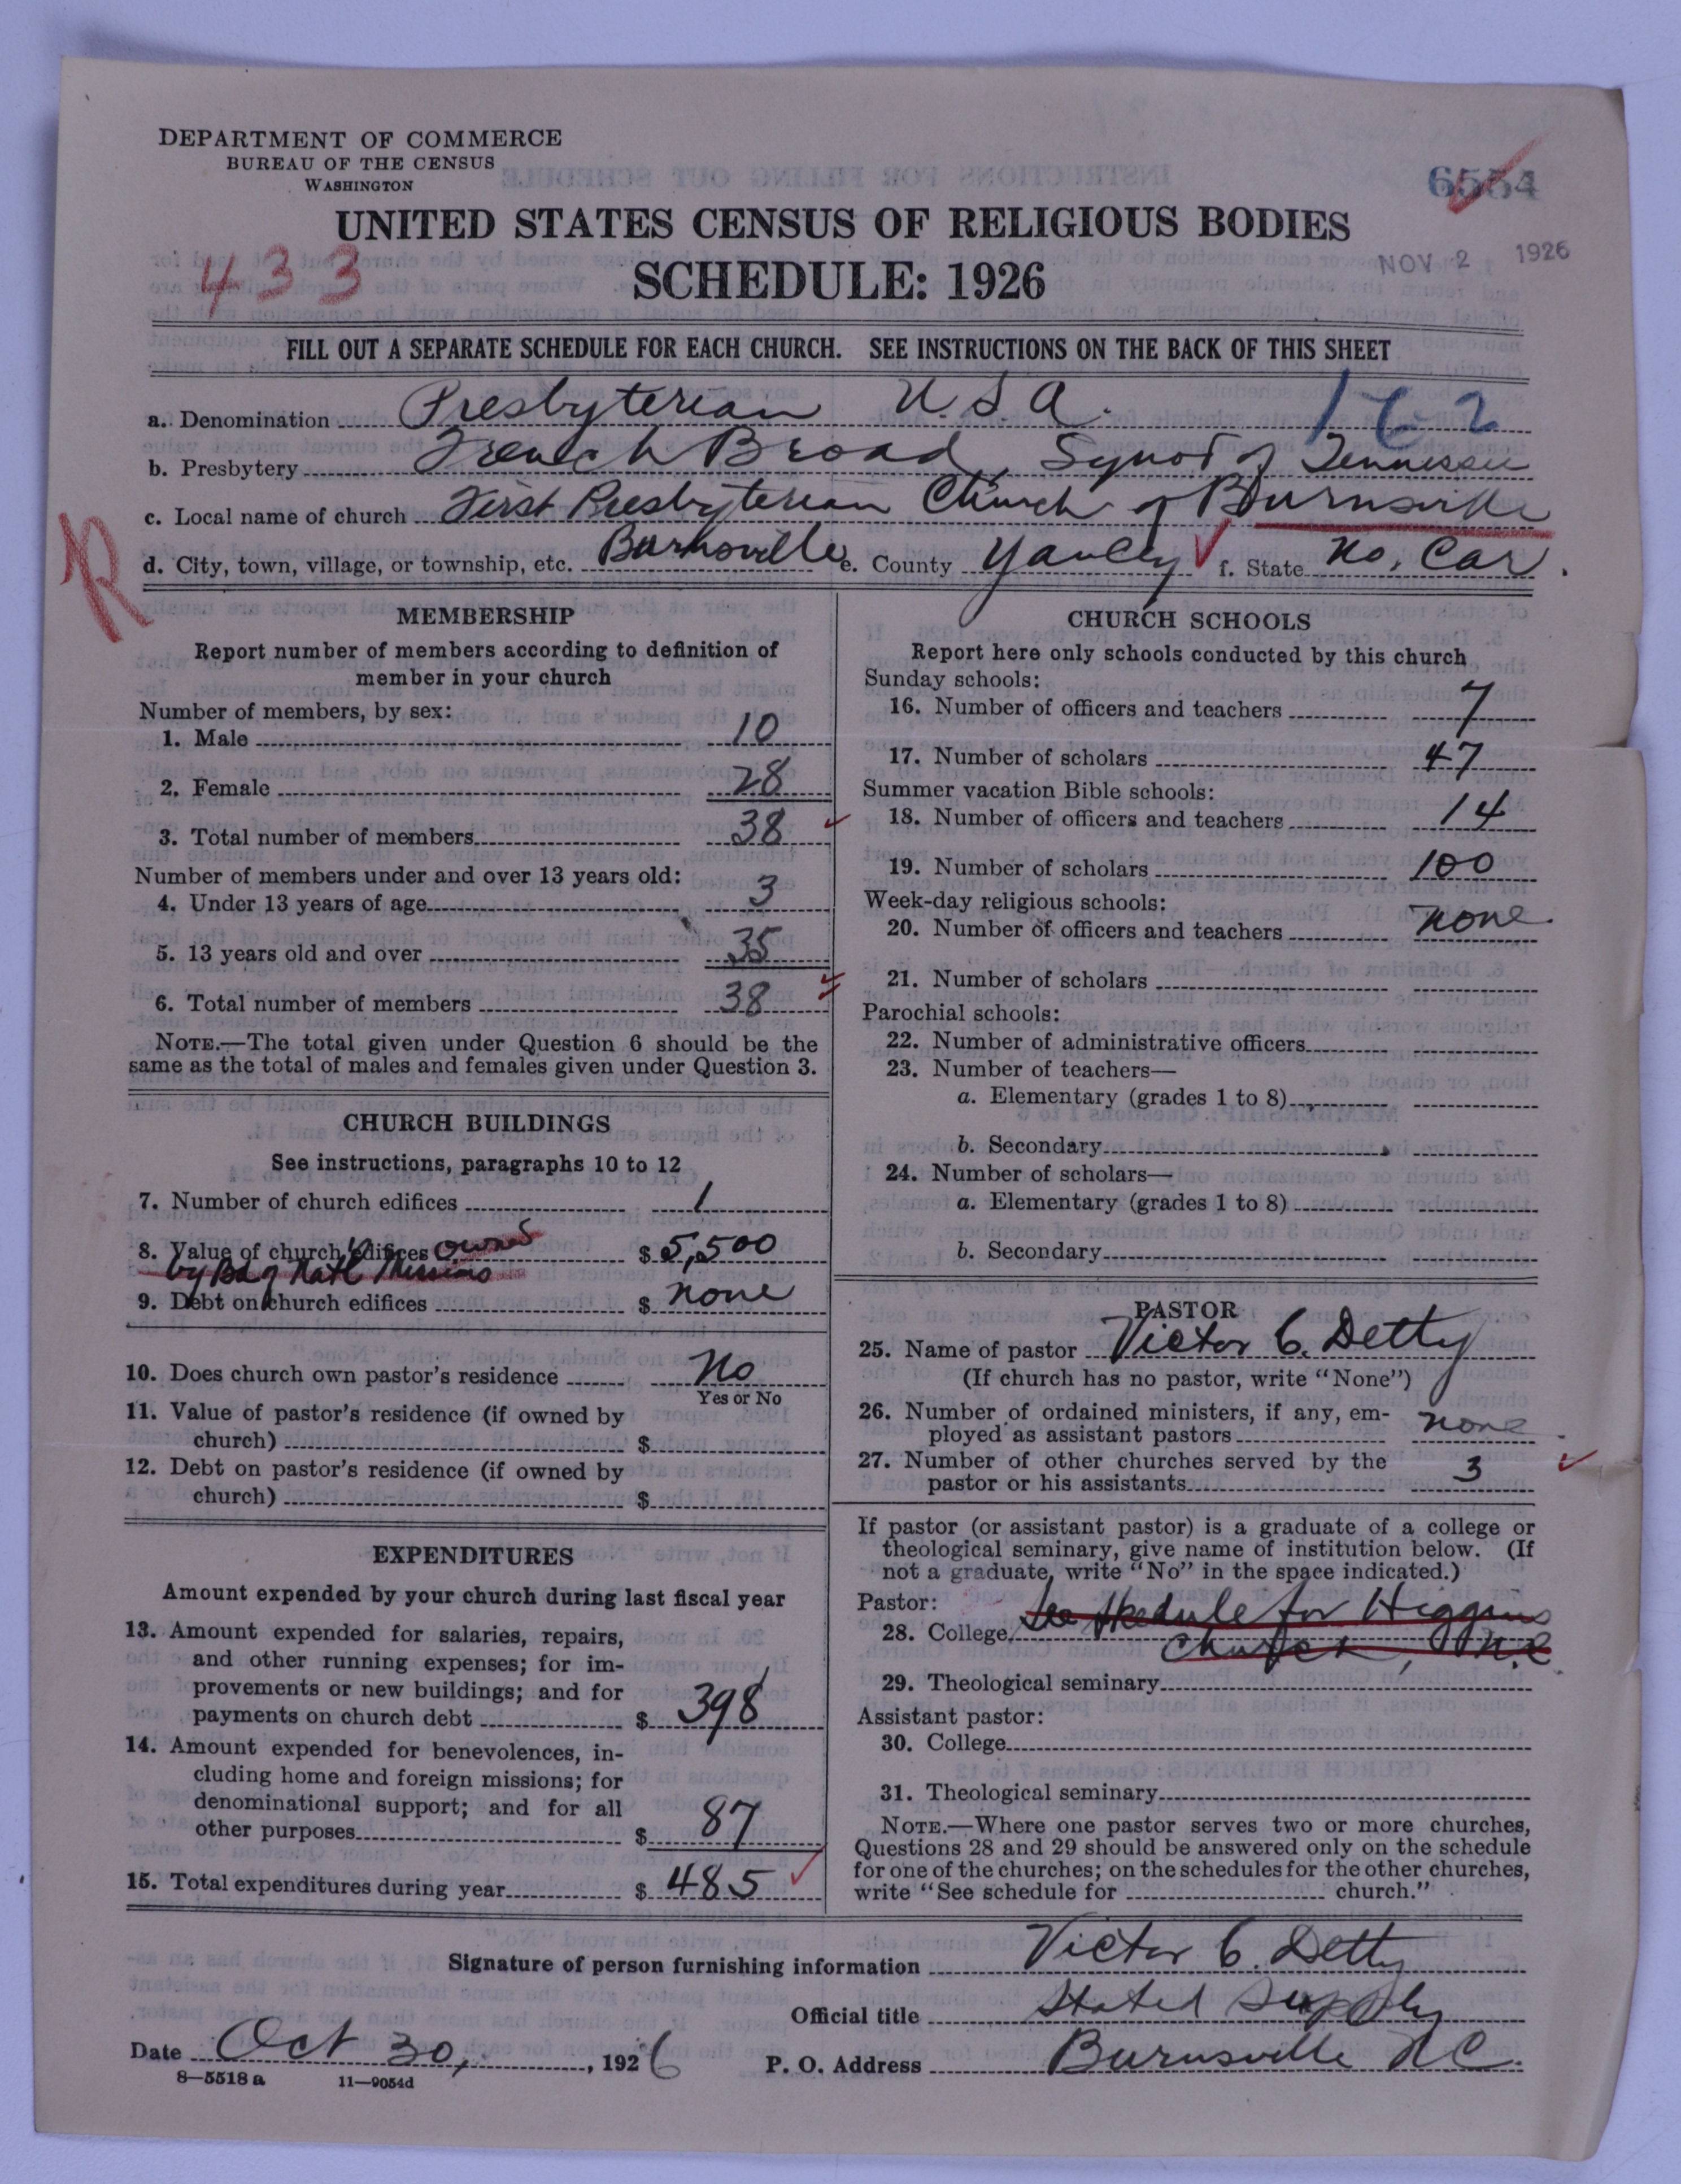 DEPARTMENT OF COMMERCE
BUREAU OF THE CENSUS
WASHINGTON
6554
UNITED STATES CENSUS OF RELIGIOUS BODIES
433
NOV 2 1926
SCHEDULE: 1926
FILL OUT A SEPARATE SCHEDULE FOR EACH CHURCH. SEE INSTRUCTIONS ON THE BACK OF THIS SHEET
a. Denomination Presbyterian U.S.A. 162
b. Presbytery French Broad, Synod of Tennessee
c. Local name of church First Presbyterian Church of Burnsville
R
d. City, town, village, or township, etc. Burnsville e. County Yancey f. State No. Car.
MEMBERSHIP
Report number of members according to definition of
member in your church
Number of members, by sex:
1. Male 10
2. Female 28
3. Total number of members 38
Number of members under and over 13 years old:
4. Under 13 years of age 3
5. 13 years old and over 35
6. Total number of members 38
NOTE.—The total given under Question 6 should be the
same as the total of males and females given under Question 3.
CHURCH BUILDINGS
See instructions, paragraphs 10 to 12
7. Number of church edifices 1
8. Value of church edifices owned $ 5,500
by Bd of Natl Missions
9. Debt on church edifices $ none
10. Does church own pastor's residence No
Yes or No
11. Value of pastor's residence (if owned by
church) $
12. Debt on pastor's residence (if owned by
church) $
EXPENDITURES
Amount expended by your church during last fiscal year
13. Amount expended for salaries, repairs,
and other running expenses; for im-
provements or new buildings; and for
payments on church debt $ 398
14. Amount expended for benevolences, in-
cluding home and foreign missions; for
denominational support; and for all
other purposes $ 87
15. Total expenditures during year $ 485
CHURCH SCHOOLS
Report here only schools conducted by this church
Sunday schools:
16. Number of officers and teachers 7
17. Number of scholars 47
Summer vacation Bible schools:
18. Number of officers and teachers 14
19. Number of scholars 100
Week-day religious schools:
20. Number of officers and teachers none.
21. Number of scholars
Parochial schools:
22. Number of administrative officers
23. Number of teachers—
a. Elementary (grades 1 to 8)
b. Secondary
24. Number of scholars—
a. Elementary (grades 1 to 8)
b. Secondary
PASTOR
25. Name of pastor Victor C. Detty
(If church has no pastor, write "None")
26. Number of ordained ministers, if any, em-
ployed as assistant pastors none.
27. Number of other churches served by the
pastor or his assistants 3
If pastor (or assistant pastor) is a graduate of a college or
theological seminary, give name of institution below. (If
not a graduate, write "No" in the space indicated.)
Pastor:
28. College See Skedule for Higgins
Church, N.C
29. Theological seminary
Assistant pastor:
30. College
31. Theological seminary
NOTE.—Where one pastor serves two or more churches,
Questions 28 and 29 should be answered only on the schedule
for one of the churches; on the schedules for the other churches,
write "See schedule for church."
Signature of person furnishing information Victor C. Detty
Official title Stated Supply
Date Oct 30, 1926 P. O. Address Burnsville N.C.
8—5518 a 11—9054d